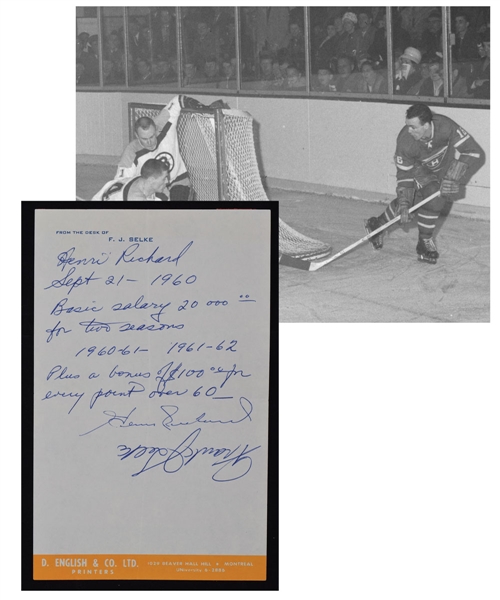 FROM THE DESK OF
F. J. SELKE
Henri Richard
Sept 21 - 1960
Basic salary 20 000 00
for two seasons
1960-61 - 1961-62
Plus a bonus of $100 00 for
every point over 60 -
Henri Richard
Frank J Selke
D. ENGLISH & CO. LTD.
PRINTERS
BEAVER HALL HILL • MONTREAL